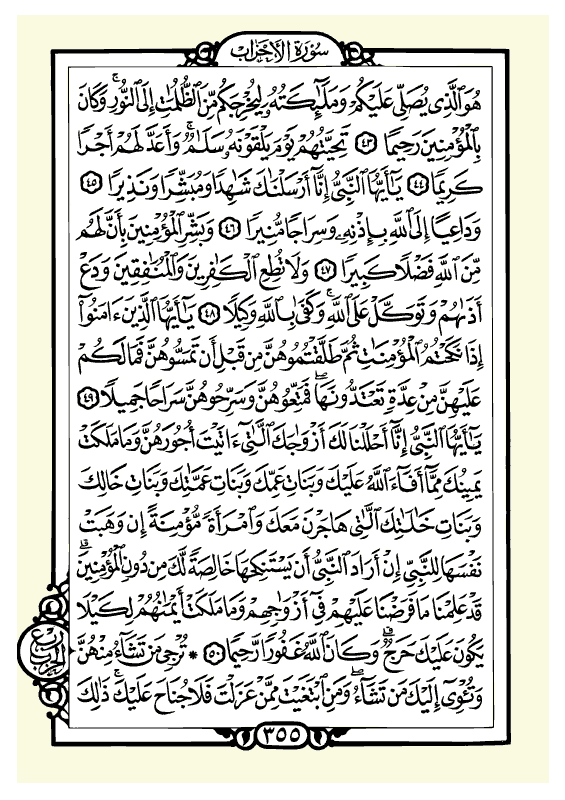 سُورَةُ الأَحْزَابِ
هُوَ ٱلَّذِى يُصَلِّى عَلَيْكُمْ وَمَلَٰٓئِكَتُهُۥ لِيُخْرِجَكُم مِّنَ ٱلظُّلُمَٰتِ إِلَى ٱلنُّورِ ۚ وَكَانَ
بِٱلْمُؤْمِنِينَ رَحِيمًا ٤٣ تَحِيَّتُهُمْ يَوْمَ يَلْقَوْنَهُۥ سَلَٰمٌ ۚ وَأَعَدَّ لَهُمْ أَجْرًا
كَرِيمًا ٤٤ يَٰٓأَيُّهَا ٱلنَّبِىُّ إِنَّآ أَرْسَلْنَٰكَ شَٰهِدًا وَمُبَشِّرًا وَنَذِيرًا ٤٥
وَدَاعِيًا إِلَى ٱللَّهِ بِإِذْنِهِۦ وَسِرَاجًا مُّنِيرًا ٤٦ وَبَشِّرِ ٱلْمُؤْمِنِينَ بِأَنَّ لَهُم
مِّنَ ٱللَّهِ فَضْلًا كَبِيرًا ٤٧ وَلَا تُطِعِ ٱلْكَٰفِرِينَ وَٱلْمُنَٰفِقِينَ وَدَعْ
أَذَىٰهُمْ وَتَوَكَّلْ عَلَى ٱللَّهِ ۚ وَكَفَىٰ بِٱللَّهِ وَكِيلًا ٤٨ يَٰٓأَيُّهَا ٱلَّذِينَ ءَامَنُوٓا۟
إِذَا نَكَحْتُمُ ٱلْمُؤْمِنَٰتِ ثُمَّ طَلَّقْتُمُوهُنَّ مِن قَبْلِ أَن تَمَسُّوهُنَّ فَمَا لَكُمْ
عَلَيْهِنَّ مِنْ عِدَّةٍ تَعْتَدُّونَهَا ۖ فَمَتِّعُوهُنَّ وَسَرِّحُوهُنَّ سَرَاحًا جَمِيلًا ٤٩
يَٰٓأَيُّهَا ٱلنَّبِىُّ إِنَّآ أَحْلَلْنَا لَكَ أَزْوَٰجَكَ ٱلَّٰتِىٓ ءَاتَيْتَ أُجُورَهُنَّ وَمَا مَلَكَتْ
يَمِينُكَ مِمَّآ أَفَآءَ ٱللَّهُ عَلَيْكَ وَبَنَاتِ عَمِّكَ وَبَنَاتِ عَمَّٰتِكَ وَبَنَاتِ خَالِكَ
وَبَنَاتِ خَٰلَٰتِكَ ٱلَّٰتِى هَاجَرْنَ مَعَكَ وَٱمْرَأَةً مُّؤْمِنَةً إِن وَهَبَتْ
نَفْسَهَا لِلنَّبِىِّ إِنْ أَرَادَ ٱلنَّبِىُّ أَن يَسْتَنكِحَهَا خَالِصَةً لَّكَ مِن دُونِ ٱلْمُؤْمِنِينَ ۗ
قَدْ عَلِمْنَا مَا فَرَضْنَا عَلَيْهِمْ فِىٓ أَزْوَٰجِهِمْ وَمَا مَلَكَتْ أَيْمَٰنُهُمْ لِكَيْلَا
يَكُونَ عَلَيْكَ حَرَجٌ ۗ وَكَانَ ٱللَّهُ غَفُورًا رَّحِيمًا ٥٠ * تُرْجِى مَن تَشَآءُ مِنْهُنَّ
وَتُـْٔوِىٓ إِلَيْكَ مَن تَشَآءُ ۖ وَمَنِ ٱبْتَغَيْتَ مِمَّنْ عَزَلْتَ فَلَا جُنَاحَ عَلَيْكَ ۚ ذَٰلِكَ
ربع الحزب
٣٥٥